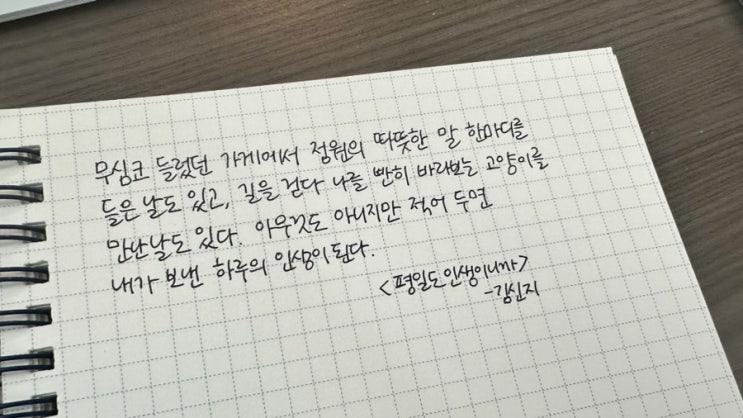 무심코 들렀던 가게에서 점원의 따뜻한 말 한마디를
들은 날도 있고, 길을 걷다 나를 빤히 바라보는 고양이를
만난 날도 있다. 아무것도 아니지만 적어 두면
내가 보낸 하루의 인생이 된다.
<평일도 인생이니까>
-김신지